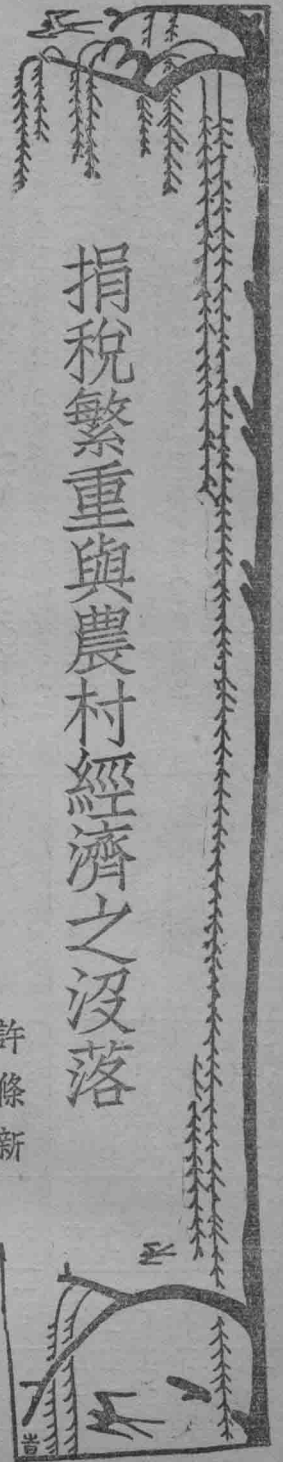 捐稅繁重與農村經濟之沒落
許條新